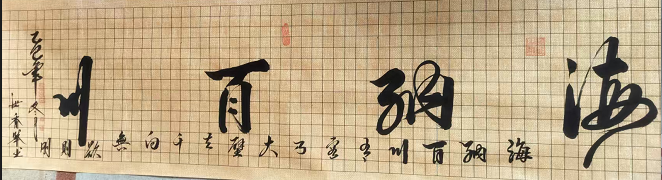 海納百川
海納百川有容乃大壁立千仞無欲則剛
乙巳年冬月